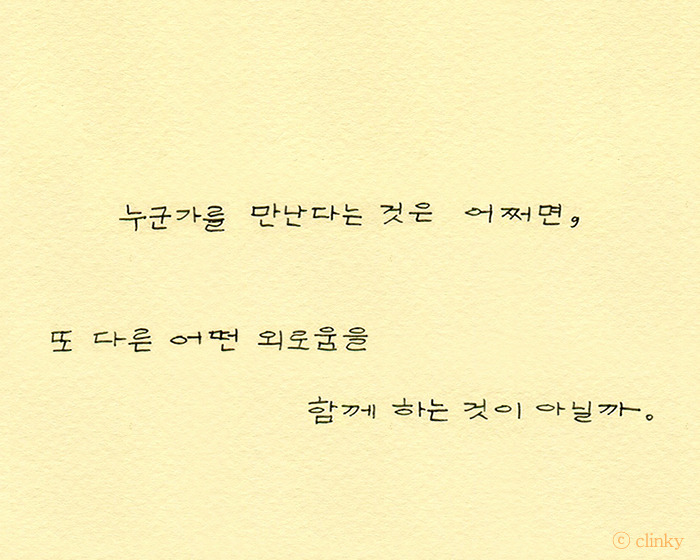 누군가를 만난다는 것은 어쩌면,
또 다른 어떤 외로움을
함께 하는 것이 아닐까.
ⓒ clinky